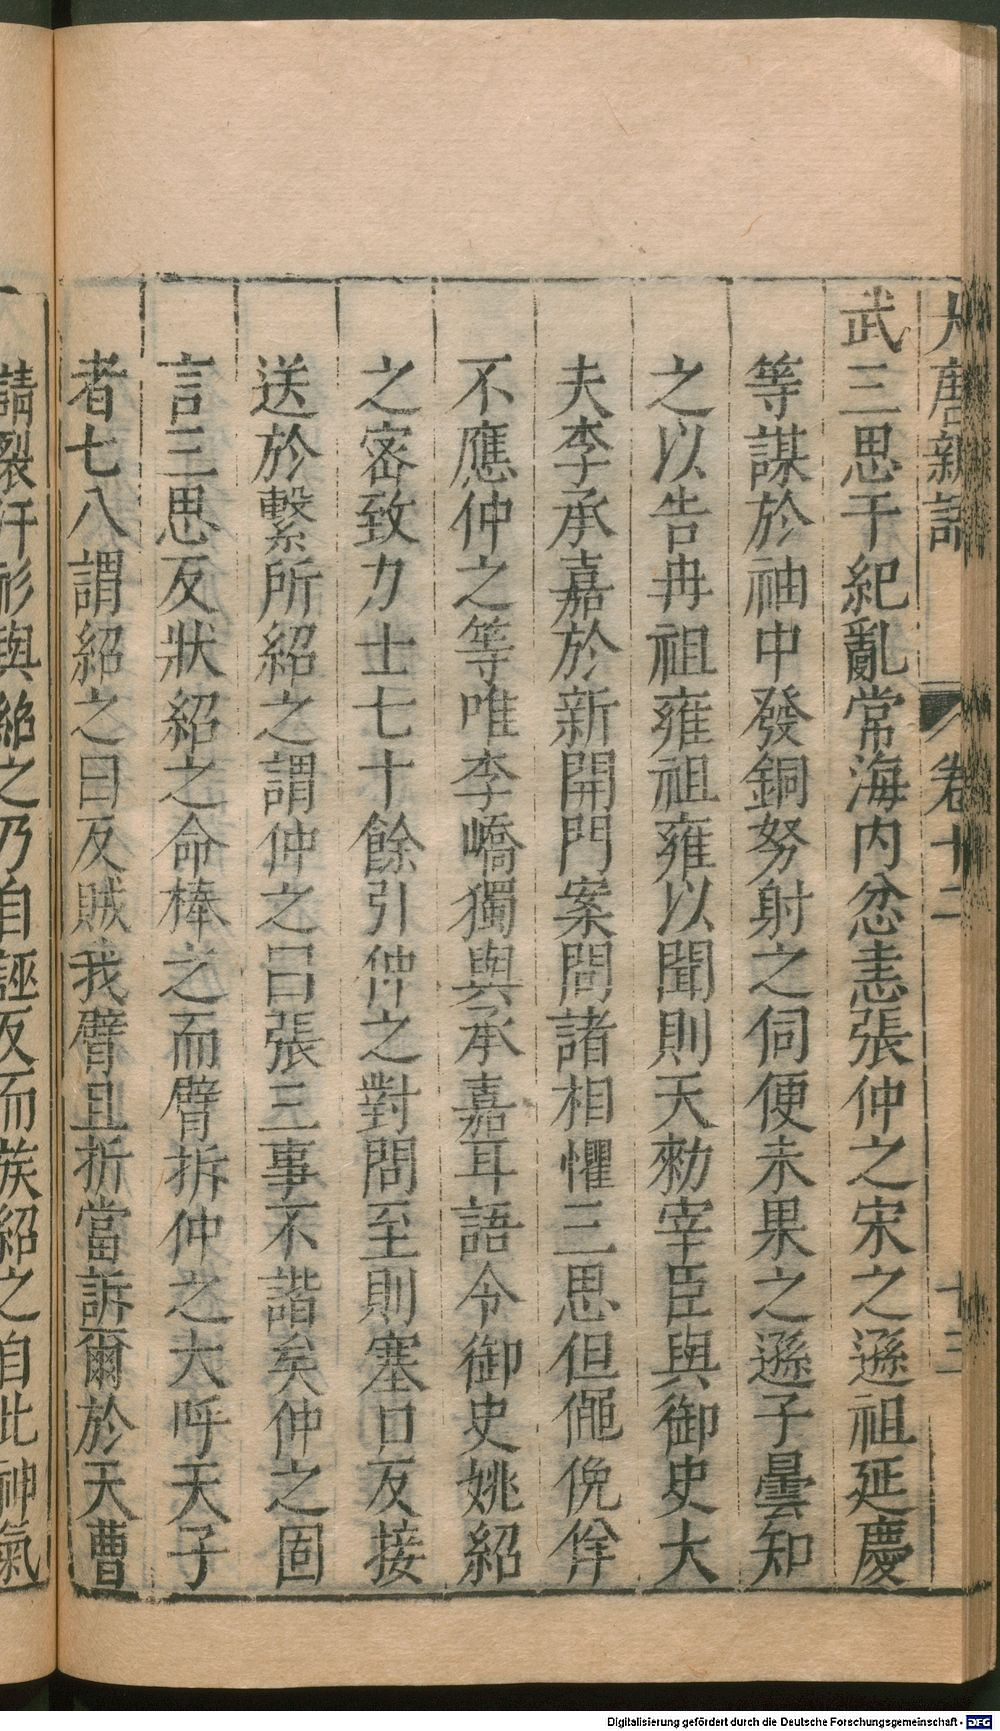 大唐新語 卷十二 十三
武三思干紀亂常海內忿恚張仲之宋之遜祖延慶
等謀於袖中發銅弩射之伺便未果之遜子曇知
之以告冉祖雍祖雍以聞則天勑宰臣與御史大
夫李承嘉於新開門案問諸相懼三思但僶俛佯
不應仲之等唯李嶠獨與承嘉耳語令御史姚紹
之密致力士七十餘引仲之對問至則塞口反接
送於繫所紹之謂仲之曰張三事不諧矣仲之固
言三思反狀紹之命棒之而臂拆仲之大呼天子
者七八謂紹之曰反賊我臂且折當訴爾於天曹
請裂汗衫與絶之乃自誣反而族紹之自此神氣
Digitalisierung gefördert durch die Deutsche Forschungsgemeinschaft - DFG